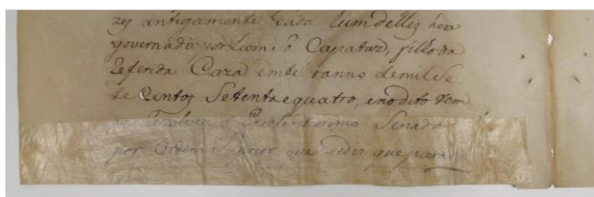 zes antigamente Casa hum delles hera
governado por hum só Capataz, filho da
Referida Caza, em te o anno de mil Se
te Centos Setenta e quatro, e no dito tem
Senado
por Ordem Superior que pedir que para